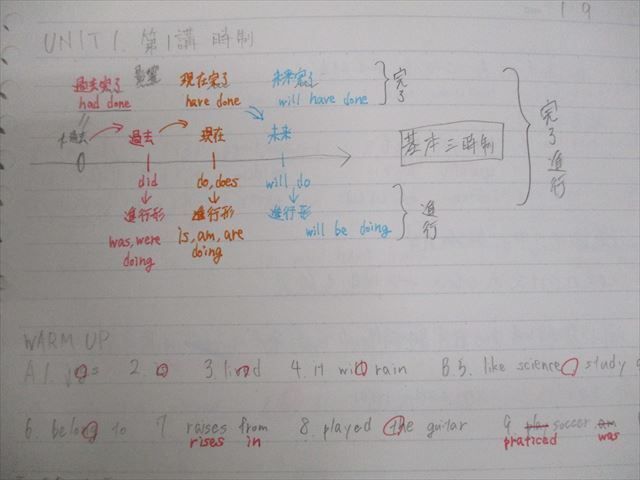 19
UNIT 1. 第1講 時制
過去完了 現在完了 未来完了 完了
had done have done will have done
大過去 過去 現在 未来 基本三時制 完了進行
0
did do, does will, do
進行形 進行形 進行形 進行
was, were is, am, are will be doing
doing doing
WARM UP
A 1. 2. 3. lived 4. It will rain B 5. like science, study
6. belong to 7. raises from 8. played the guitar 9. play soccer am
rises in praticed was